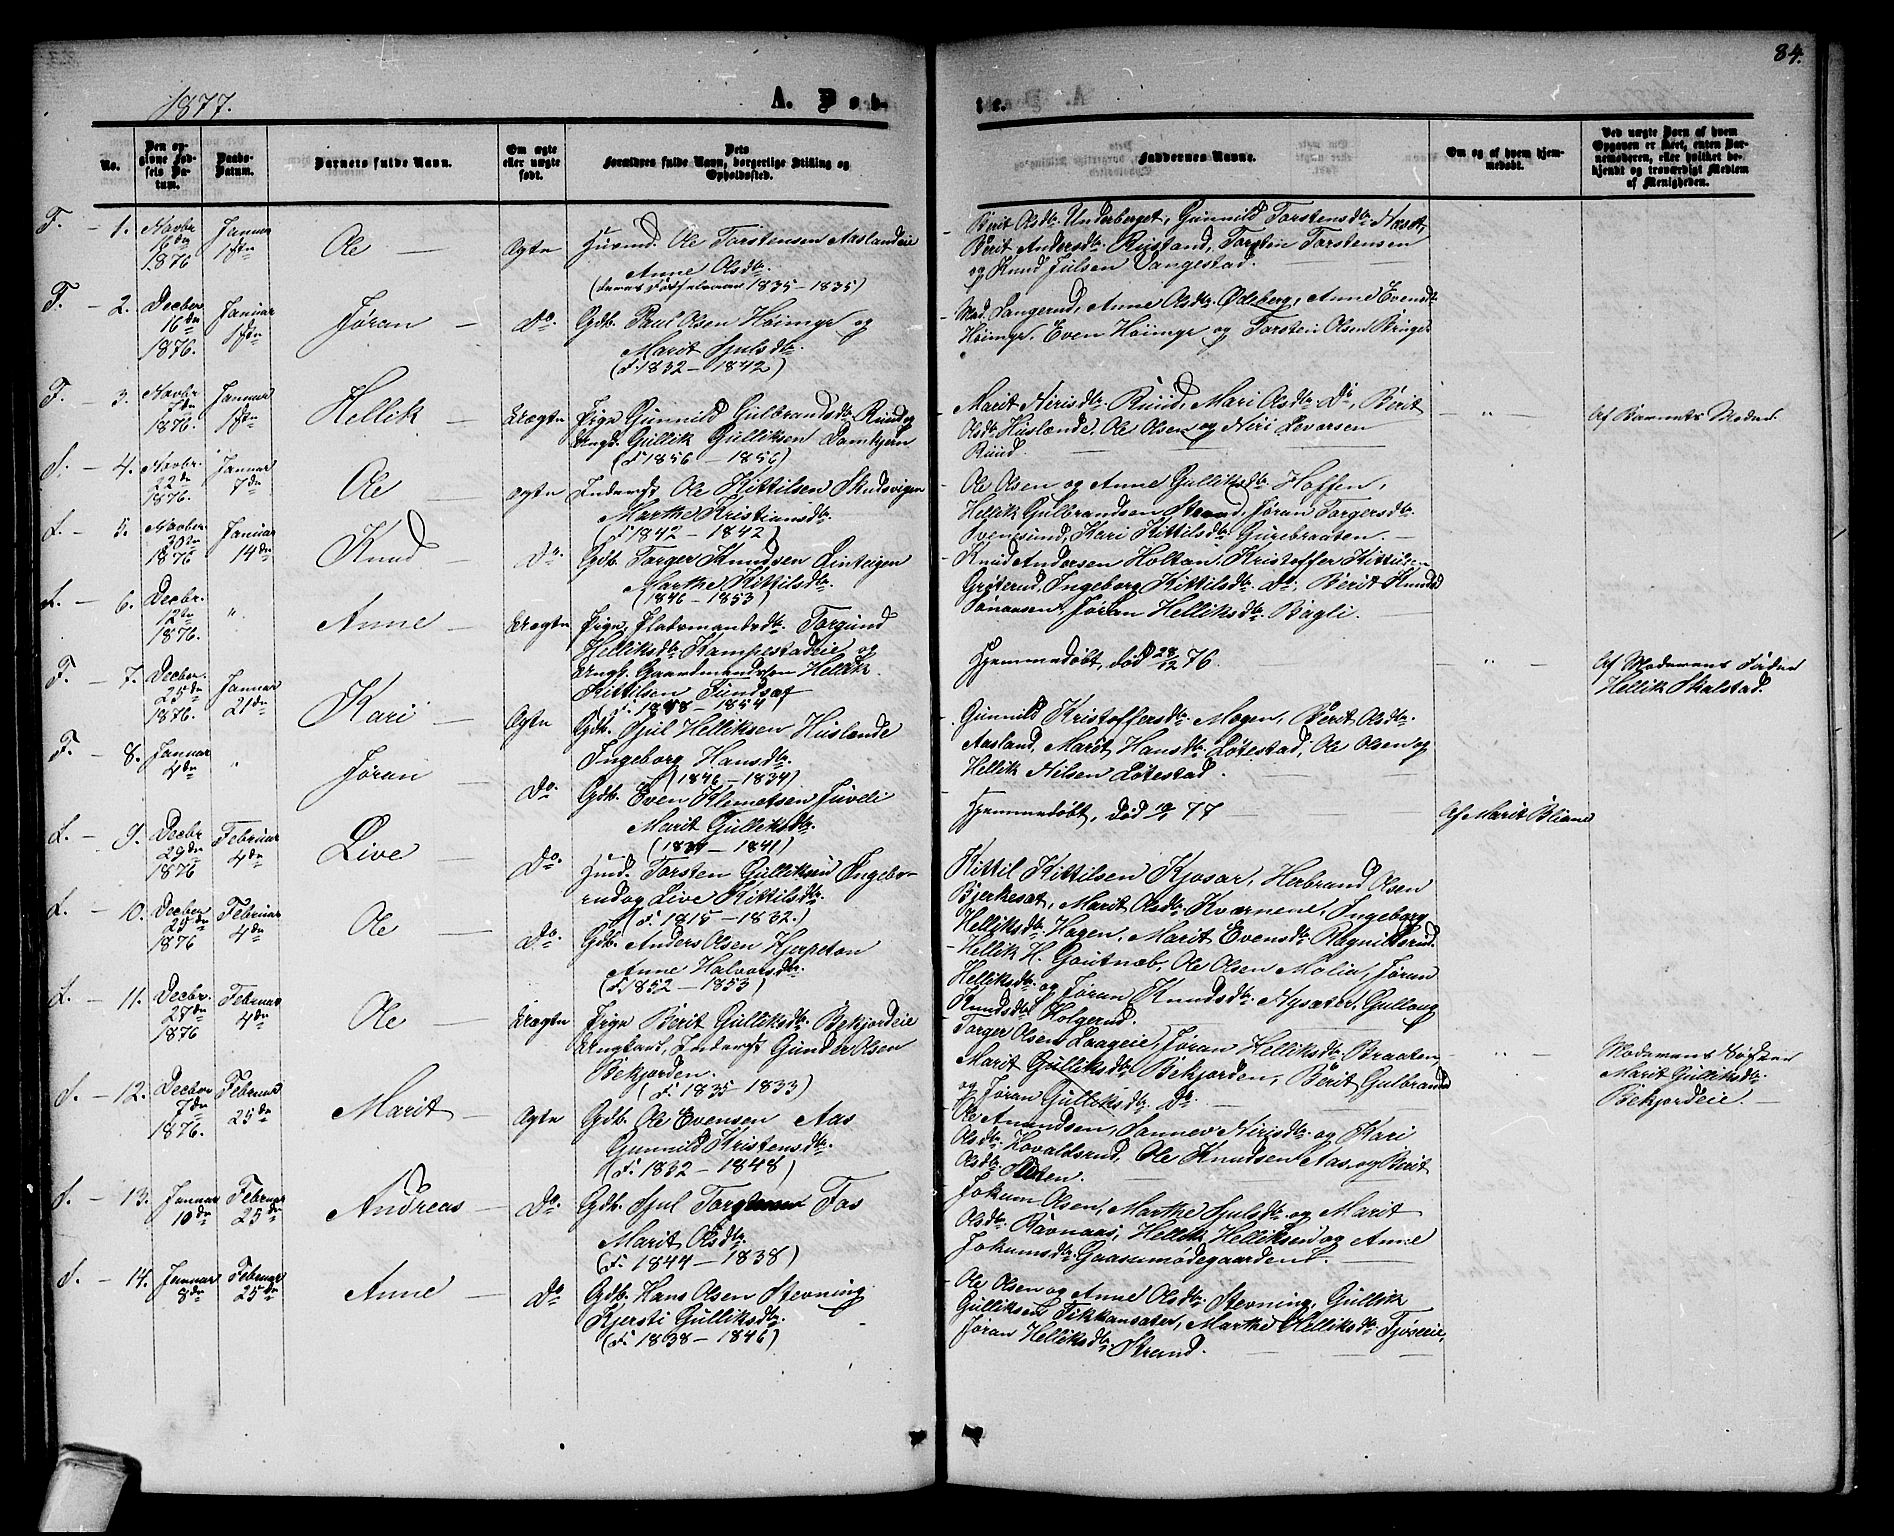 84.
1877.
A. Døb-
te.
No.
Den op-
givne Fød-
sels Da-
tum.
Daabs-
Datum.
Barnets fulde Navn.
Om ægte
eller uægte
født.
Dets
Forældres fulde Navn, borgerlige Stilling og
Opholdssted.
Faddernes Navne.
Om og af hvem hjem-
medøbt.
Ved uægte Børn af hvem
Opgaven er skeet, enten Bar-
nemoderen, eller hvilket be-
kjendt og troværdigt Medlem
af Menigheden.
F. - 1.
Novbr
16de
1876
Januar
1ste
Ole
Ægte
Husmd. Ole Torstensen Aaslandeie
Anne Olsdtr.
(deres Fødselsaar 1835 - 1835)
Berit Olsdtr. Underberget, Gunnild Torstensdtr Næset,
Berit Andersdtr. Rustand, Torsten Torstensen
og Knud Julsen Vangestad.
F. - 2.
Decber
16de
1876.
Januar
1ste
Jøran
Do.
Gdb. Paul Olsen Høimyr og
Marit Sjulsdtr.
(F. 1832 - 1842)
Mad. Langerud, Anne Olsdtr. Ødeberg, Anne Evensdtr
Høimyr, Even Høimyr og Torsten Olsen Bringes
F. - 3.
Novbr
7de
1876.
Januar
1ste
Hellik
Uægte
Pige Gunnild Gulbrandsdtr. Ruud og
Ungk. Gullik Gulliksen Damtjern
(F. 1856 - 1856)
Marit Nirisdtr. Ruud, Mari Olsdtr. Do, Berit
Olsdtr. Huslænde, Ole Olsen og Niri Levorsen
Ruud.
Af Barnets Moder.
S. - 4.
Novbr.
22de
1876.
Januar
7de
Ole
Ægte
Inderst Ole Kittilsen Skudsvigen
Marthe Kristiansdtr.
(F. 1842 - 1842)
Ole Olsen og Anne Gulliksdtr. Hoffen,
Hellik Gulbrandsen Strand, Jøran Torgersdtr.
Svensund, Kari Kittilsdtr. Gurebraaten.
L. - 5.
Novbr.
20de
1876
Januar
14de
Knud
Do.
Gdb. Torger Knudsen Linteigen
Marthe Kittilsdtr.
(1846 - 1853)
Knud Andersen Holtan, Kristoffer Kittilsen
Grøterud, Ingeborg Kittilsdtr. Do, Berit Knudsd
Jøran Helliksdtr. Bagli.
L. - 6.
Decbr.
12te
1876.
"
Anne
Uægte
Pige, Pladsmandsdtr. Torgund
Helliksdtr. Kampestadeie og
Ungk. Gaardmandssøn Hellik
Kittilsen
(F. 1848 - 1854)
Hjemmedøbt, død 28/12 76.
Af Moderens Fader
Hellik Skalstad.
F. - 7.
Decbr.
25de
1876.
Januar
21de
Kari
Ægte
Gdb. Sjul Helliksen Huslænde
Ingeborg Hansdtr.
(1846 - 1834)
Gunnild Kristoffersdtr. Mogen, Berit Olsdtr.
Aasland, Marit Hansdtr. Løtestad, Ole Olsen og
Hellik Nilsen Løtestad.
F. - 8.
Januar
4de
"
Jøran
Do.
Gdb. Even Klemetsen Juveli
Marit Gulliksdtr.
(1834 - 1841)
Hjemmedøbt, død 10/1 77
Af Marit Bliane
L. - 9.
Decbr
29de
1876
Februar
4de
Live
Do.
Husmd. Torsten Gulliksen Ingebo-
rud og Live Kittilsdtr.
(F. 1815 - 1832.)
Kittil Kittilsen Kjosar, Herbrand Olsen
Bjerkesat, Marit Olsdtr. Kværnene, Ingeborg
Helliksdtr. Hagen, Marit Evensdtr. Ragnildsrud.
L. - 10.
Decber
29de
1876
Februar
4de
Ole
Do.
Gdb. Anders Olsen Hjerpetan
Anne Halvorsdtr.
(F. 1852 - 1853)
Hellik H. Goutnæb, Ole Olsen Molia, Jøran
Helliksdtr. og Jøran Knudsdtr. Nysater, Gullaug
Knudsdtr. Holgerud.
L. - 11.
Decbr.
27de
1876
Februar
4de
Ole
Uægte
Pige Berit Gulliksdtr. Bekjordeie
Ungkarl, Inderst Gunder Olsen
Bekjorden.
(F. 1835 - 1833)
Torger Olsen Laageie, Jøran Helliksdtr. Braaten,
Marit Gulliksdtr. Bekjorden, Berit Gulbrandsd
og Jøran Gulliksdtr. Do.
Moderens Søster
Marit Gulliksdtr.
Bekjordeie.
S. - 12.
Decbr
7de
1876.
Februar
25de
Marit
Ægte
Gdb. Ole Evensen Aas
Gunnild Kristensdtr.
(F. 1832 - 1848)
Ole Amundsen, Sannev Nirisdtr. og Kari
Olsdtr. Hovaldsrud, Ole Knudsen Aas, og Berit
Olsdtr.
S. - 13.
Januar
10de
Februar
25de
Andreas
Do.
Gdb. Sjul Torgersen Fas
Marit Olsdtr.
(F. 1844 - 1838)
Jokum Olsen, Marthe Sjulsdtr. og Marit
Olsdtr. Ravnaas, Hellik Helliksen og Anne
Jokumsdtr. Gaasumødegaarden.
S. - 14.
Januar
8de
Februar
25de
Anne
Do
Gdb. Hans Olsen Stevning
Kjersti Gulliksdtr.
(F. 1838 - 1846)
Ole Olsen og Anne Olsdtr. Stevning, Gullik
Gulliksen Fikkansater, Marthe Helliksdtr. Fjøseie,
Jøran Helliksdtr. Strand.